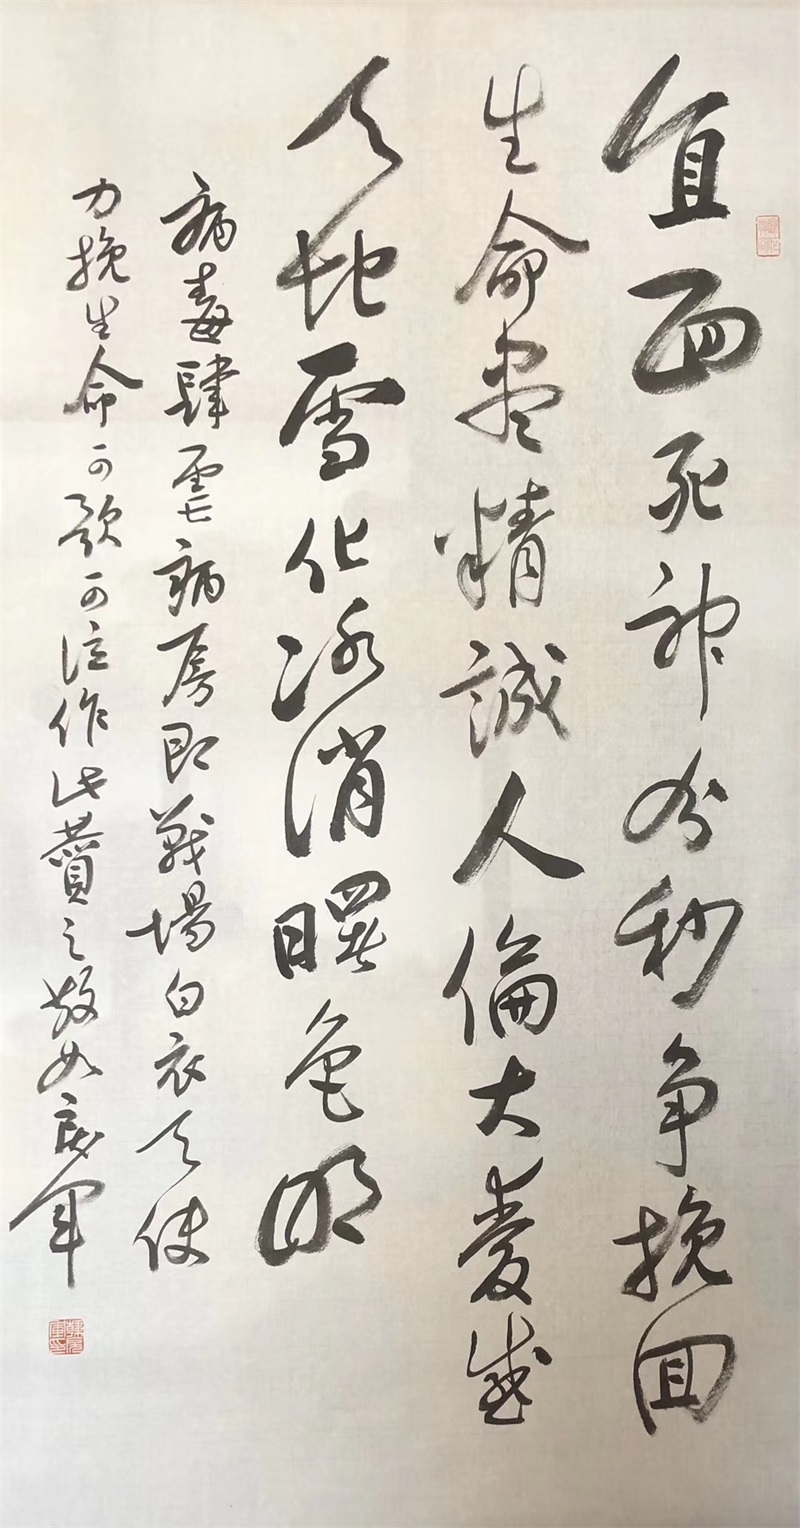 直面死神分秒争挽回
生命尽精誠人倫大愛感
天地雪化冰消曙色明
病毒肆虐病房即戰場白衣天使
力挽生命可歌可泣作此贊之